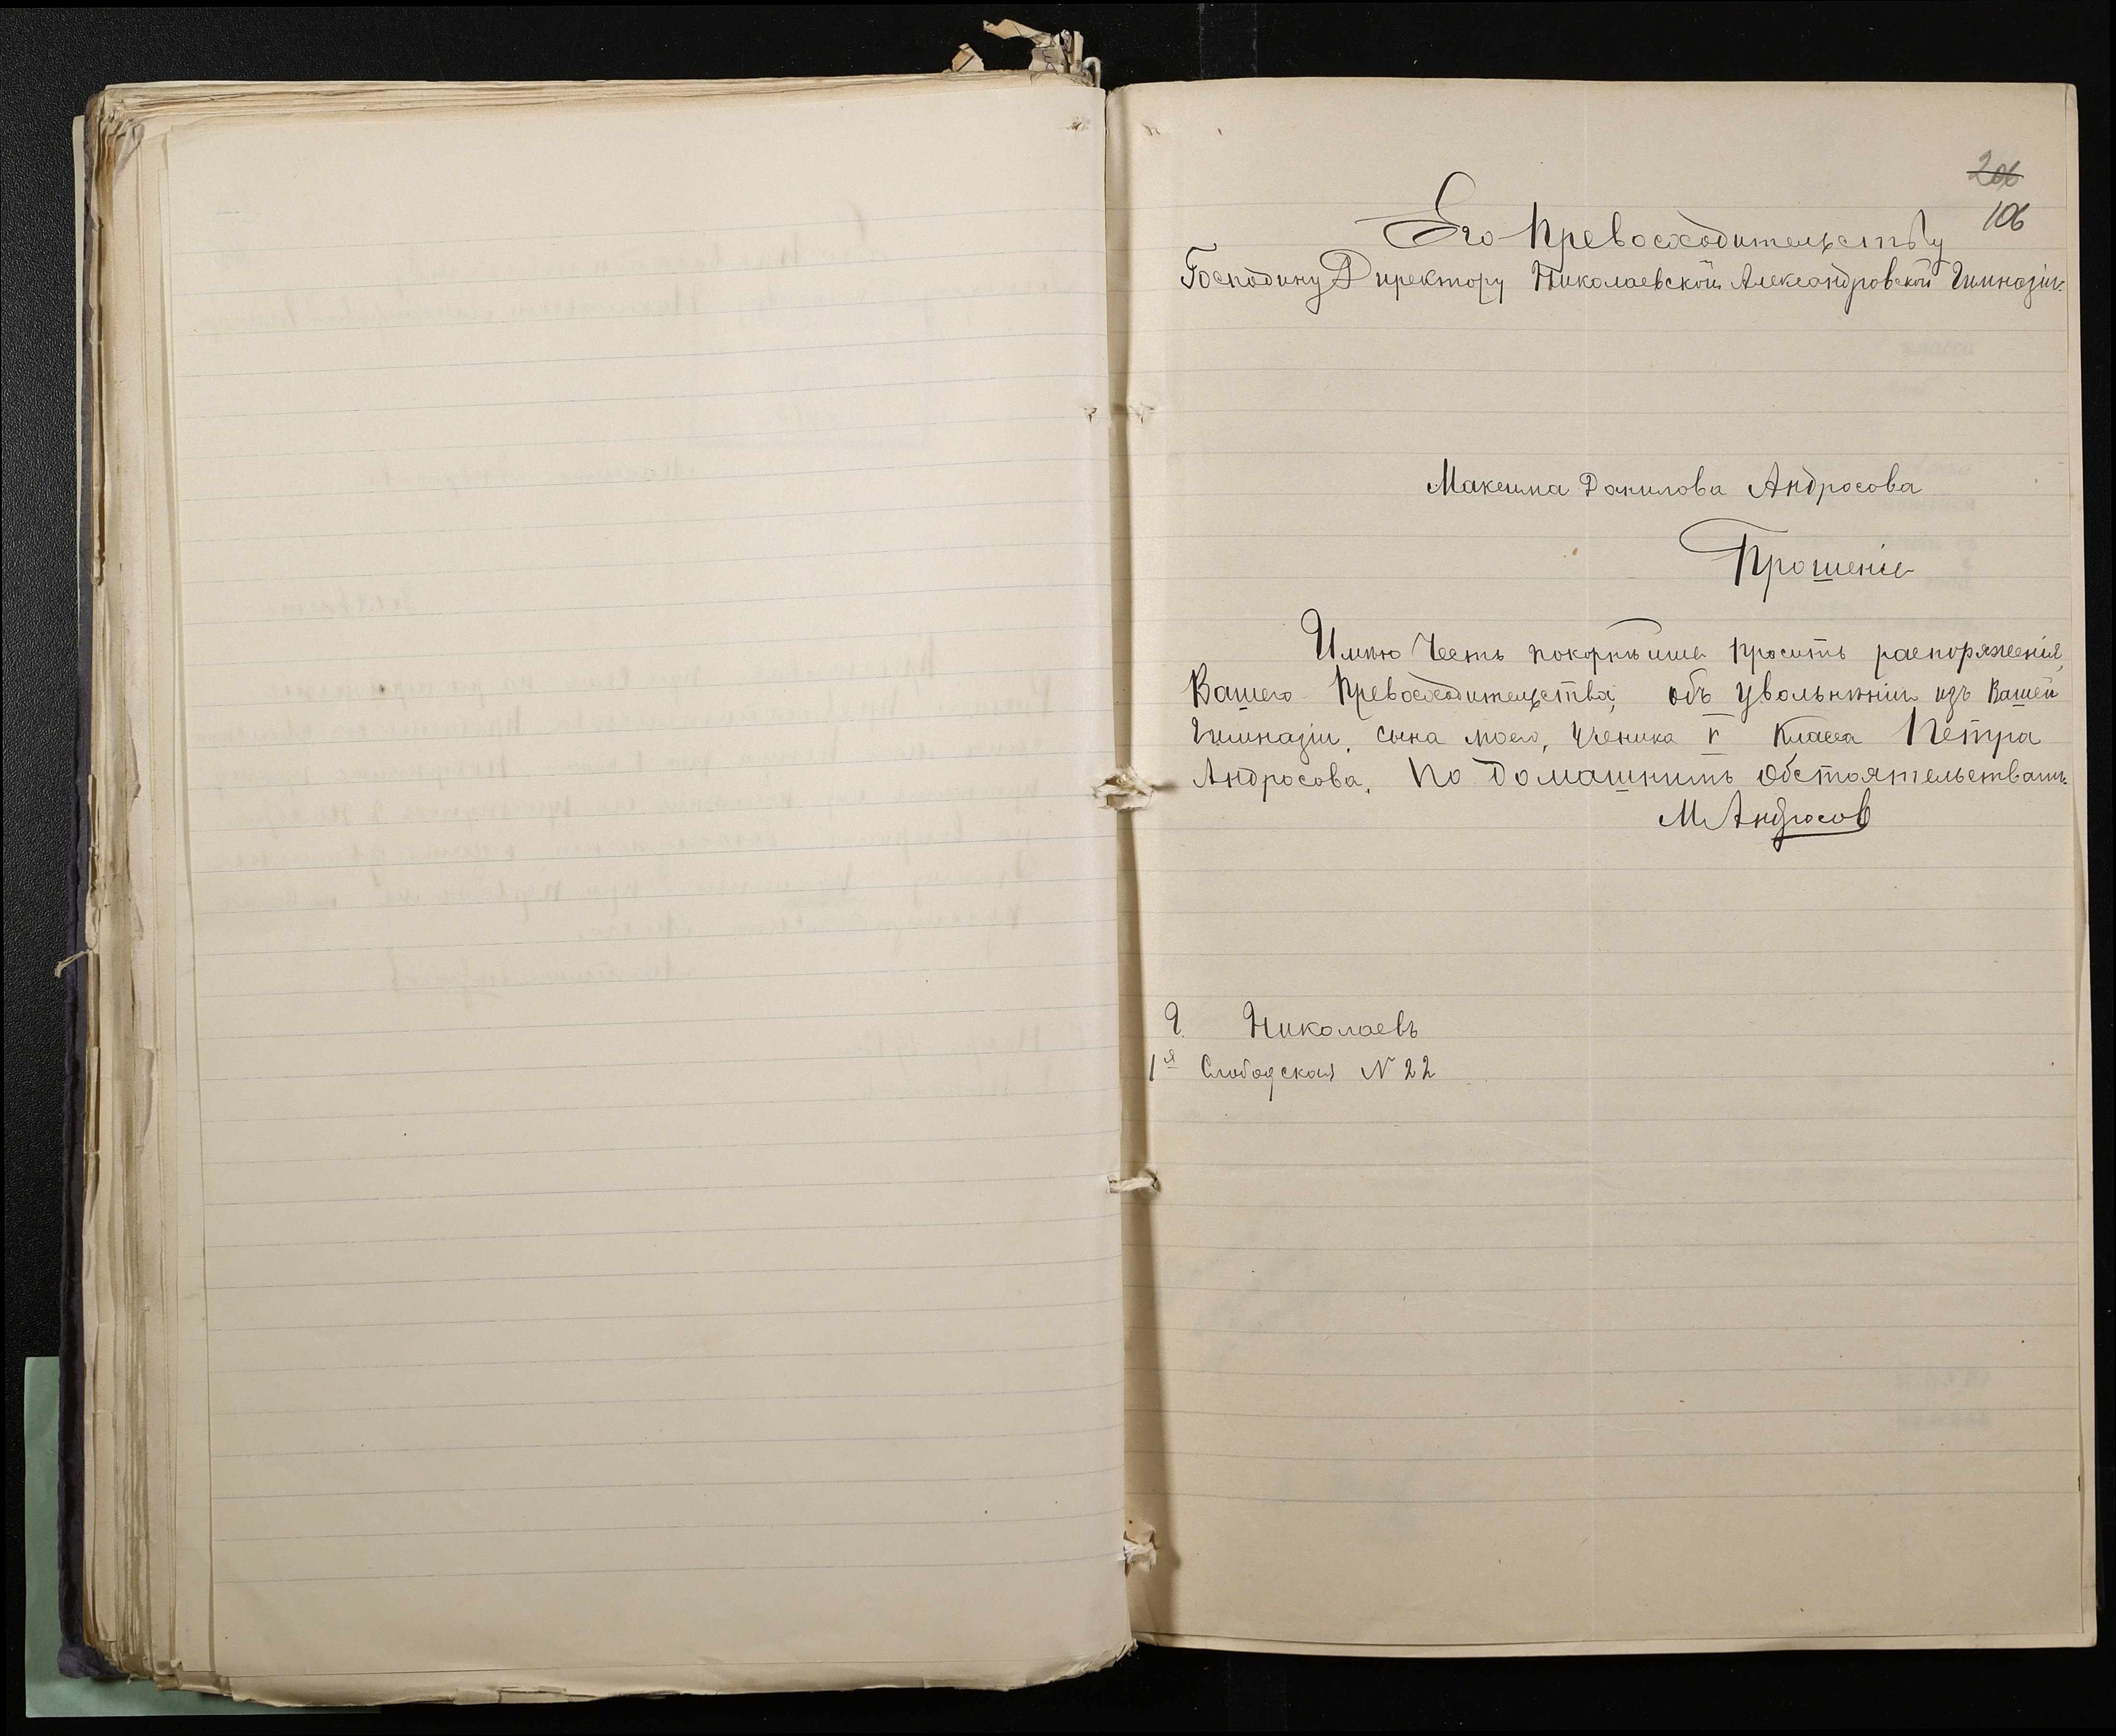 206
106
Его Превосходительству
Господину Директору Николаевской Александровской Гимназіи
Максима Данилова Андросова
Прошеніе
Имѣю Честь покорнѣише просить распоряженія,
Вашего Превосходительства, объ увольнѣніи изъ Вашей
Гимназіи, сына моего, Ученика V Класса Петра
Андросова, по домашнимъ обстоятельствамъ.
М Андросов
Г. Николаевъ
1я Слободская № 22